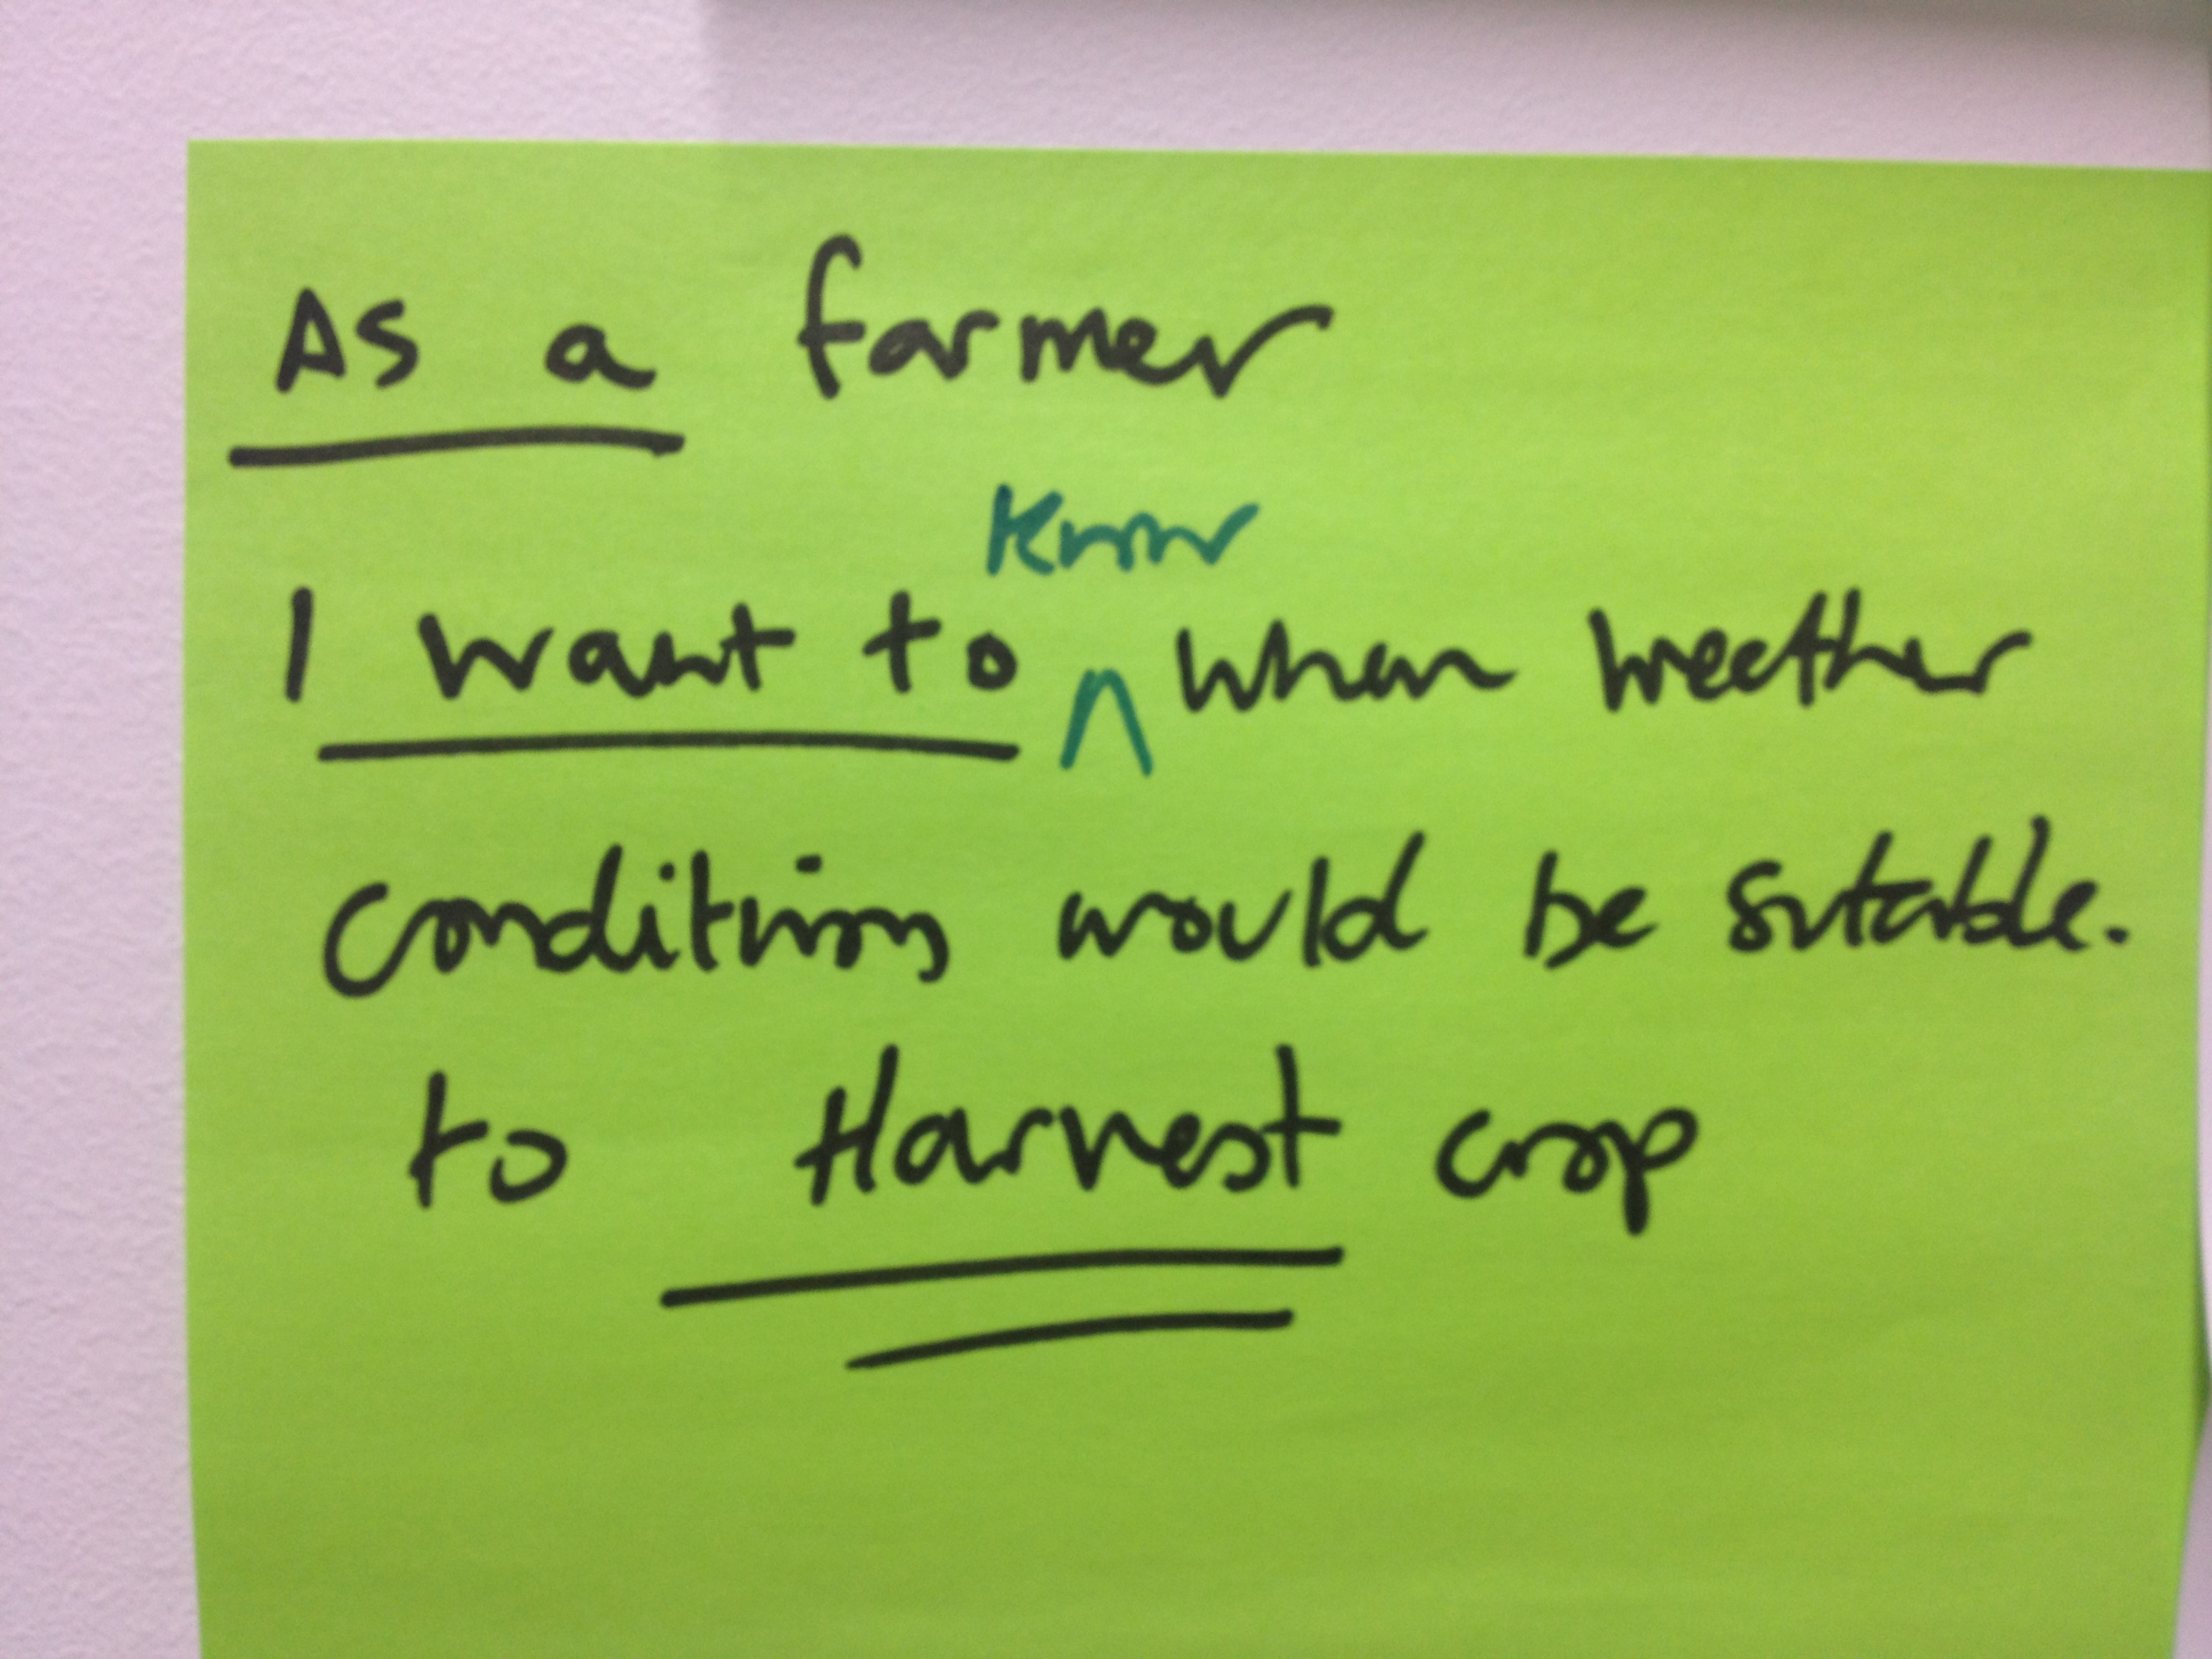 As a farmer
Know
I want to ^ when weather
conditions would be sutable.
to Harvest crop